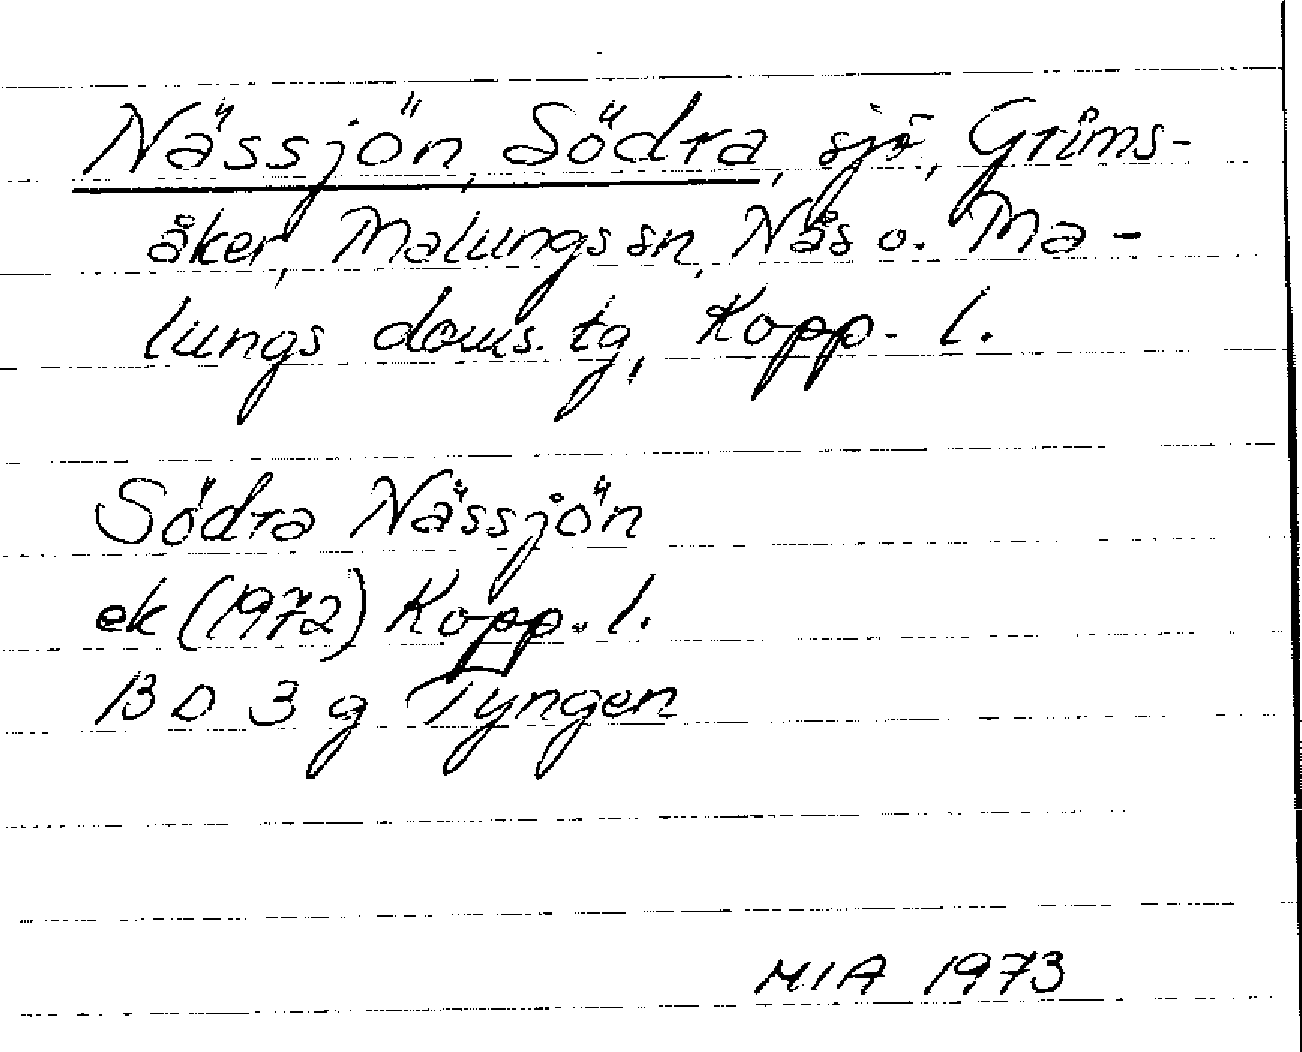 Nässjön, Södra, sjö, Grims-
åker, Malungs sn, Nås o. Ma-
lungs doms. tg, Kopp. l.
Södra Nässjön
ek (1972) Kopp. l.
13 D 3 g Tyngen
MIA 1973